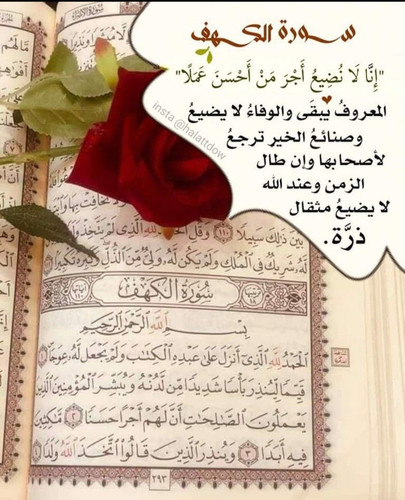 سورة الكهف
"إِنَّا لَا نُضِيعُ أَجْرَ مَنْ أَحْسَنَ عَمَلًا"
المعروفُ يبقَى والوفاءُ لا يضيعُ
وصنائعُ الخير ترجعُ
لأصحابها وإن طال
الزمن وعند الله
لا يضيعُ مثقال
ذرَّة .
insta @halattdow
بَيْنَ ذَٰلِكَ سَبِيلًا ١١٠ وَقُلِ
لَّهُ شَرِيكٌ فِي الْمُلْكِ وَلَمْ يَكُن لَّهُ وَلِيٌّ مِّنَ الذُّلِّ وَكَبِّرْهُ تَكْبِيرًا
سُورَةُ الْكَهْفِ
بِسْمِ اللَّهِ الرَّحْمَٰنِ الرَّحِيمِ
الْحَمْدُ لِلَّهِ الَّذِي أَنزَلَ عَلَىٰ عَبْدِهِ الْكِتَابَ وَلَمْ يَجْعَل لَّهُ عِوَجًا ١
قَيِّمًا لِّيُنذِرَ بَأْسًا شَدِيدًا مِّن لَّدُنْهُ وَيُبَشِّرَ الْمُؤْمِنِينَ الَّذِينَ
يَعْمَلُونَ الصَّالِحَاتِ أَنَّ لَهُمْ أَجْرًا حَسَنًا ٢ مَّاكِثِينَ
فِيهِ أَبَدًا ٣ وَيُنذِرَ الَّذِينَ قَالُوا اتَّخَذَ اللَّهُ وَلَدًا ٤
٢٩٣